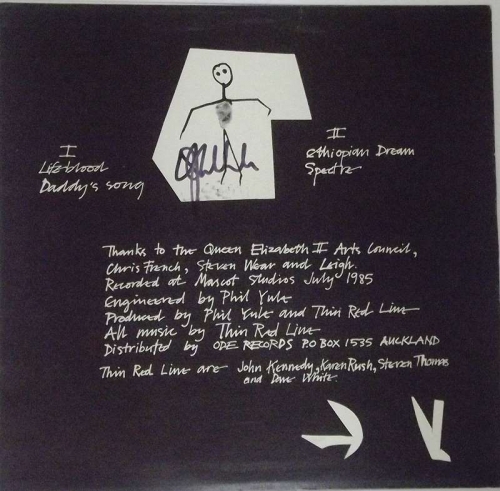 I
Lifeblood
Daddy's song
II
Ethiopian Dream
Spectre
Thanks to the Queen Elizabeth II Arts Council,
Chris French, Steven Wear and Leigh.
Recorded at Mascot Studios July 1985
Engineered by Phil Yule
Produced by Phil Yule and Thin Red Line
All music by Thin Red Line
Distributed by ODE RECORDS P.O BOX 1535 AUCKLAND
Thin Red Line are John Kennedy, Karen Rush, Steven Thomas
and Dave White.